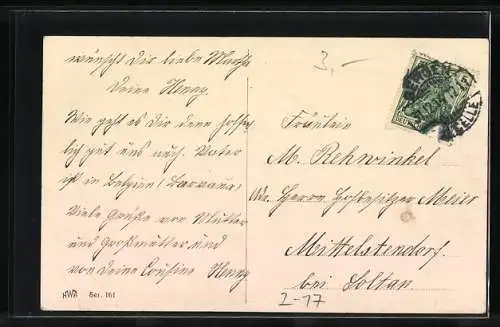 wünscht Dir liebe Martha
Deine Henny.
Wie geht es Dir denn hoffent-
lich gut uns auch. Vater
ist in Belgien
Viele Grüße von Mutter
und Großmutter und
von Deine Cousine Henny
HWB Ser. 161
3,-
CELLE
Fräulein
M. Rehwinkel
Adr. Herrn Hofbesitzer Meier
Mittelstendorf
bei Soltau.
2-17